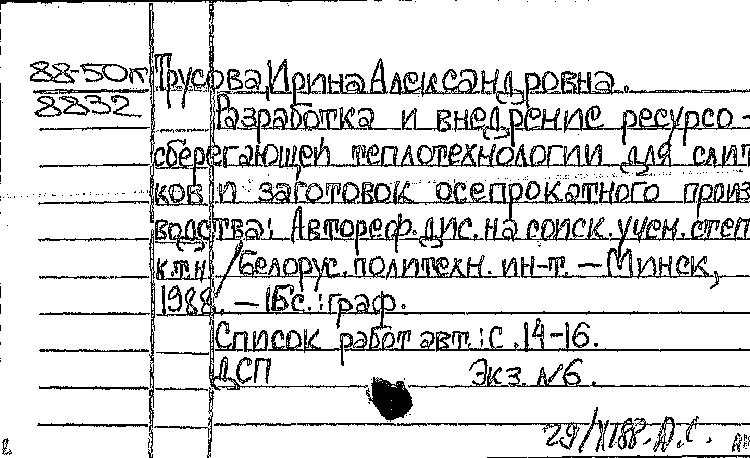 88-50п Трусова, Ирина Александровна.
8832
Разработка и внедрение ресурсо-
сберегающей теплотехнологии для слит
ков и заготовок осепрокатного произ
водства: Автореф. дис. на соиск. учен. степ
к.т.н / Белорус. политехн. ин-т. – Минск,
1988. – 16с.: граф.
Список работ авт.: с. 14-16.
ДСП Экз. №6.
29/XI88.